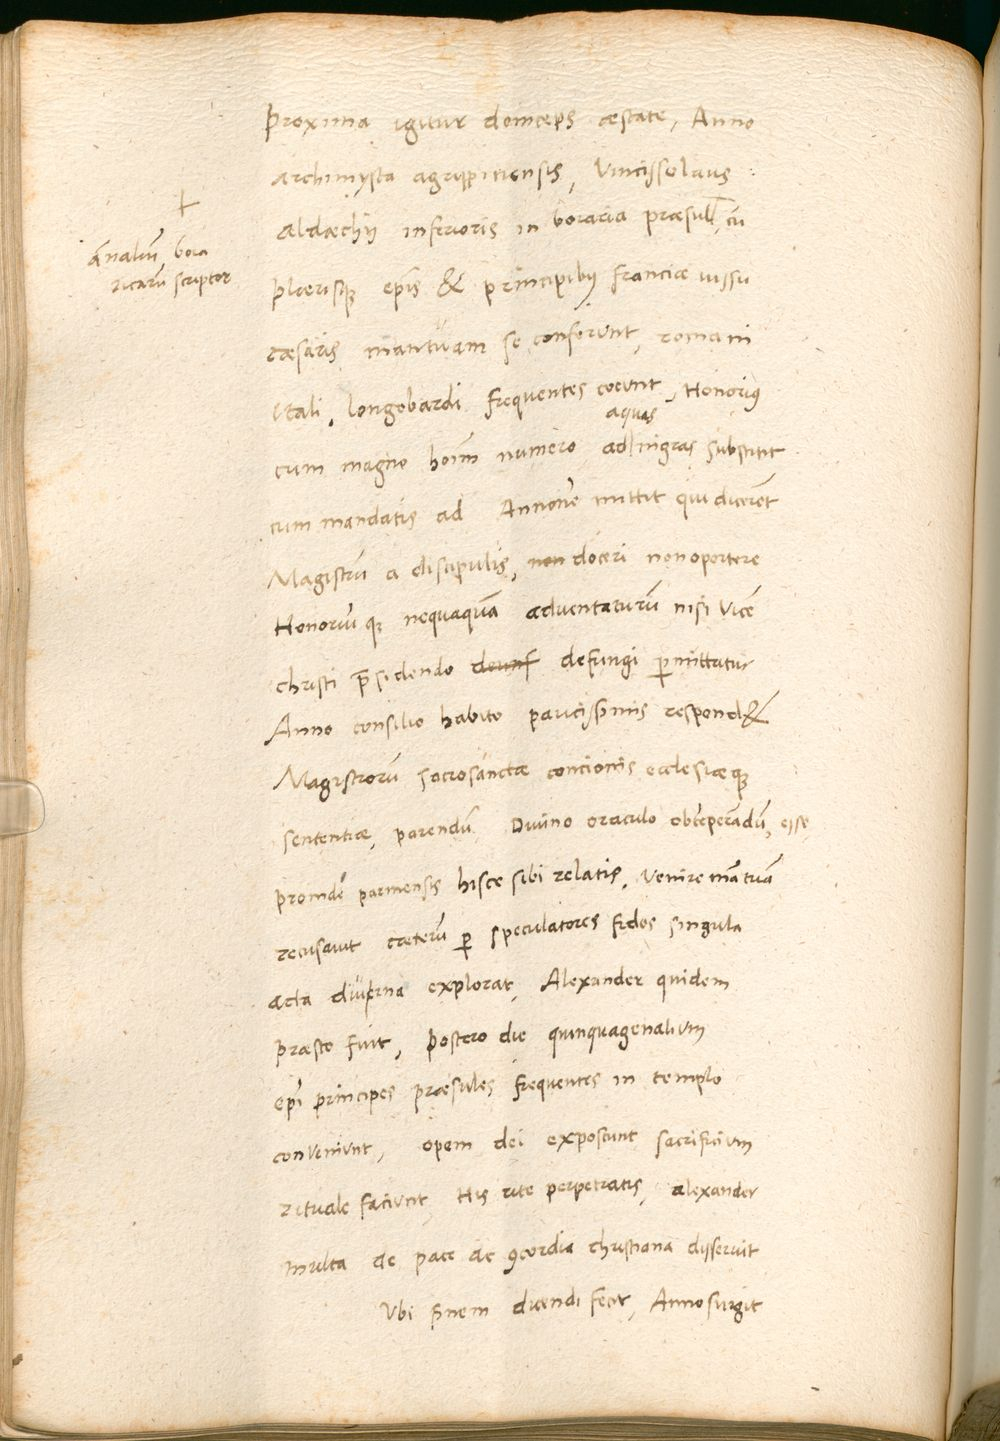 Proxima igitur deinceps æstate, Anno
archimysta agrippinensis, Vincissolaus
Aldæchij inferioris in boiaria præsul, cũ
plerisq; epĩs & principibg franciæ iussu
cæsaris mantuam se conferunt, romani
Itali, longobardi frequentes coeunt, Honorig
aquas
cum magno hoĩm numero ad nigras substitit
cum mandatis ad Annonẽ mittit qui dicerẽt
Magistrũ a discipulis, non doceri non oportere
Honoriũ q; nequaquã adventaturũ nisi vicẽ
christi p̃sidendo defungi p̱mittatur
Anno consilio habito paucissimis respond&
Magistrorũ sacrosanctæ concionis ecclesiæq;
sententiæ, parendũ Divino oraculo obtẽperandũ, eẽ se
proindẽ parmensis hisce sibi relatis, venire mãtuã
recusavit cæterũ p̱ speculatores fidos singula
acta diurna explorat, Alexander quidem
præsto fuit, postero die quinquagenalium
epĩ principes præsules frequentes in templo
conveniunt, opem dei exposcunt sacrificium
rituale faciunt, His rite perpetratis, alexander
multa de pace de ꝯcordia christiana disseruit
Ubi finem dicendi fecit, Anno surgit
+
ãnaliũ boia
ricarũ scriptor